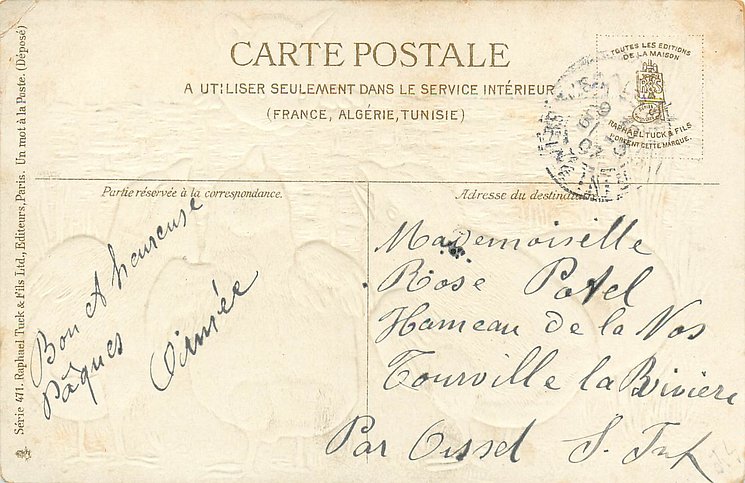 CARTE POSTALE
A UTILISER SEULEMENT DANS LE SERVICE INTÉRIEUR
(FRANCE, ALGÉRIE, TUNISIE)
TOUTES LES EDITIONS
DE LA MAISON
RAPHAEL TUCK & FILS
PORTENT CETTE MARQUE.
Partie réservée à la correspondance.
Adresse du destinataire
Bon et heureuse
Pâques
Mademoiselle
Rose Potel
Hameau de la Vos
Tourville la Rivière
Par Oissel S. Inf
Série 471. Raphael Tuck & Fils Ltd., Editeurs, Paris. Un mot à la Poste. (Déposé)